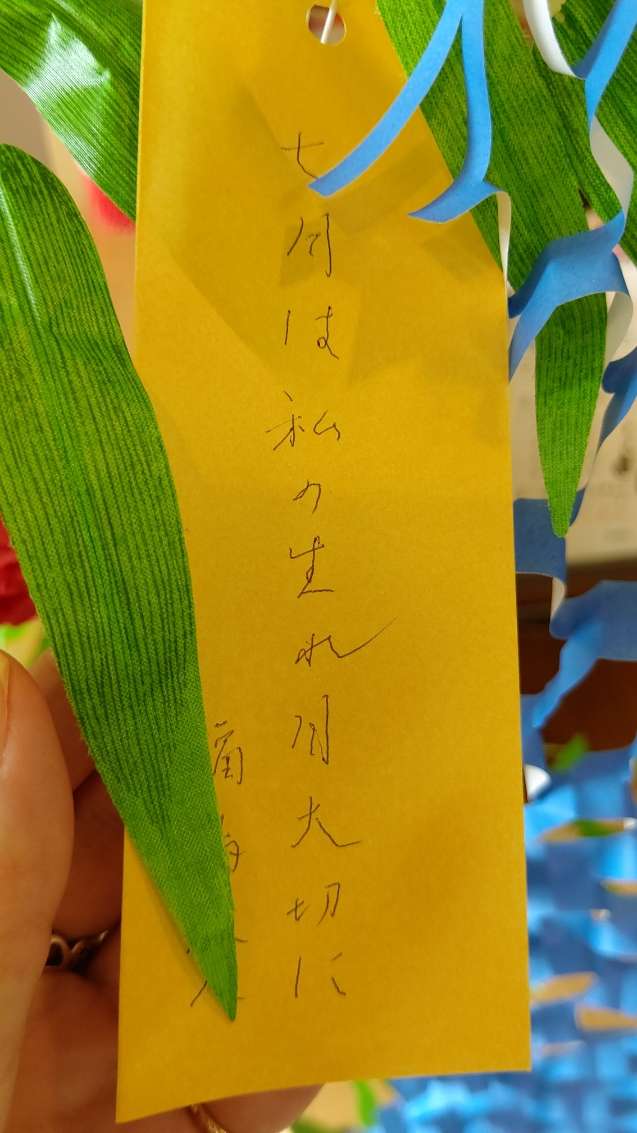 七月は私の生れ月大切に